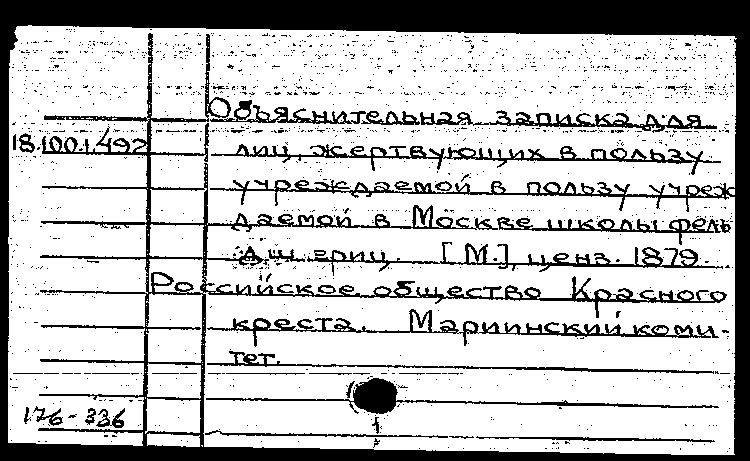 Объяснительная записка для
18.100.1.492
лиц, жертвующих в пользу
учреждаемой в пользу учреж
даемой в Москве школы фель
дшериц. [М.], ценз. 1879.
Российское общество Красного
креста. Мариинский коми-
тет.
176-336